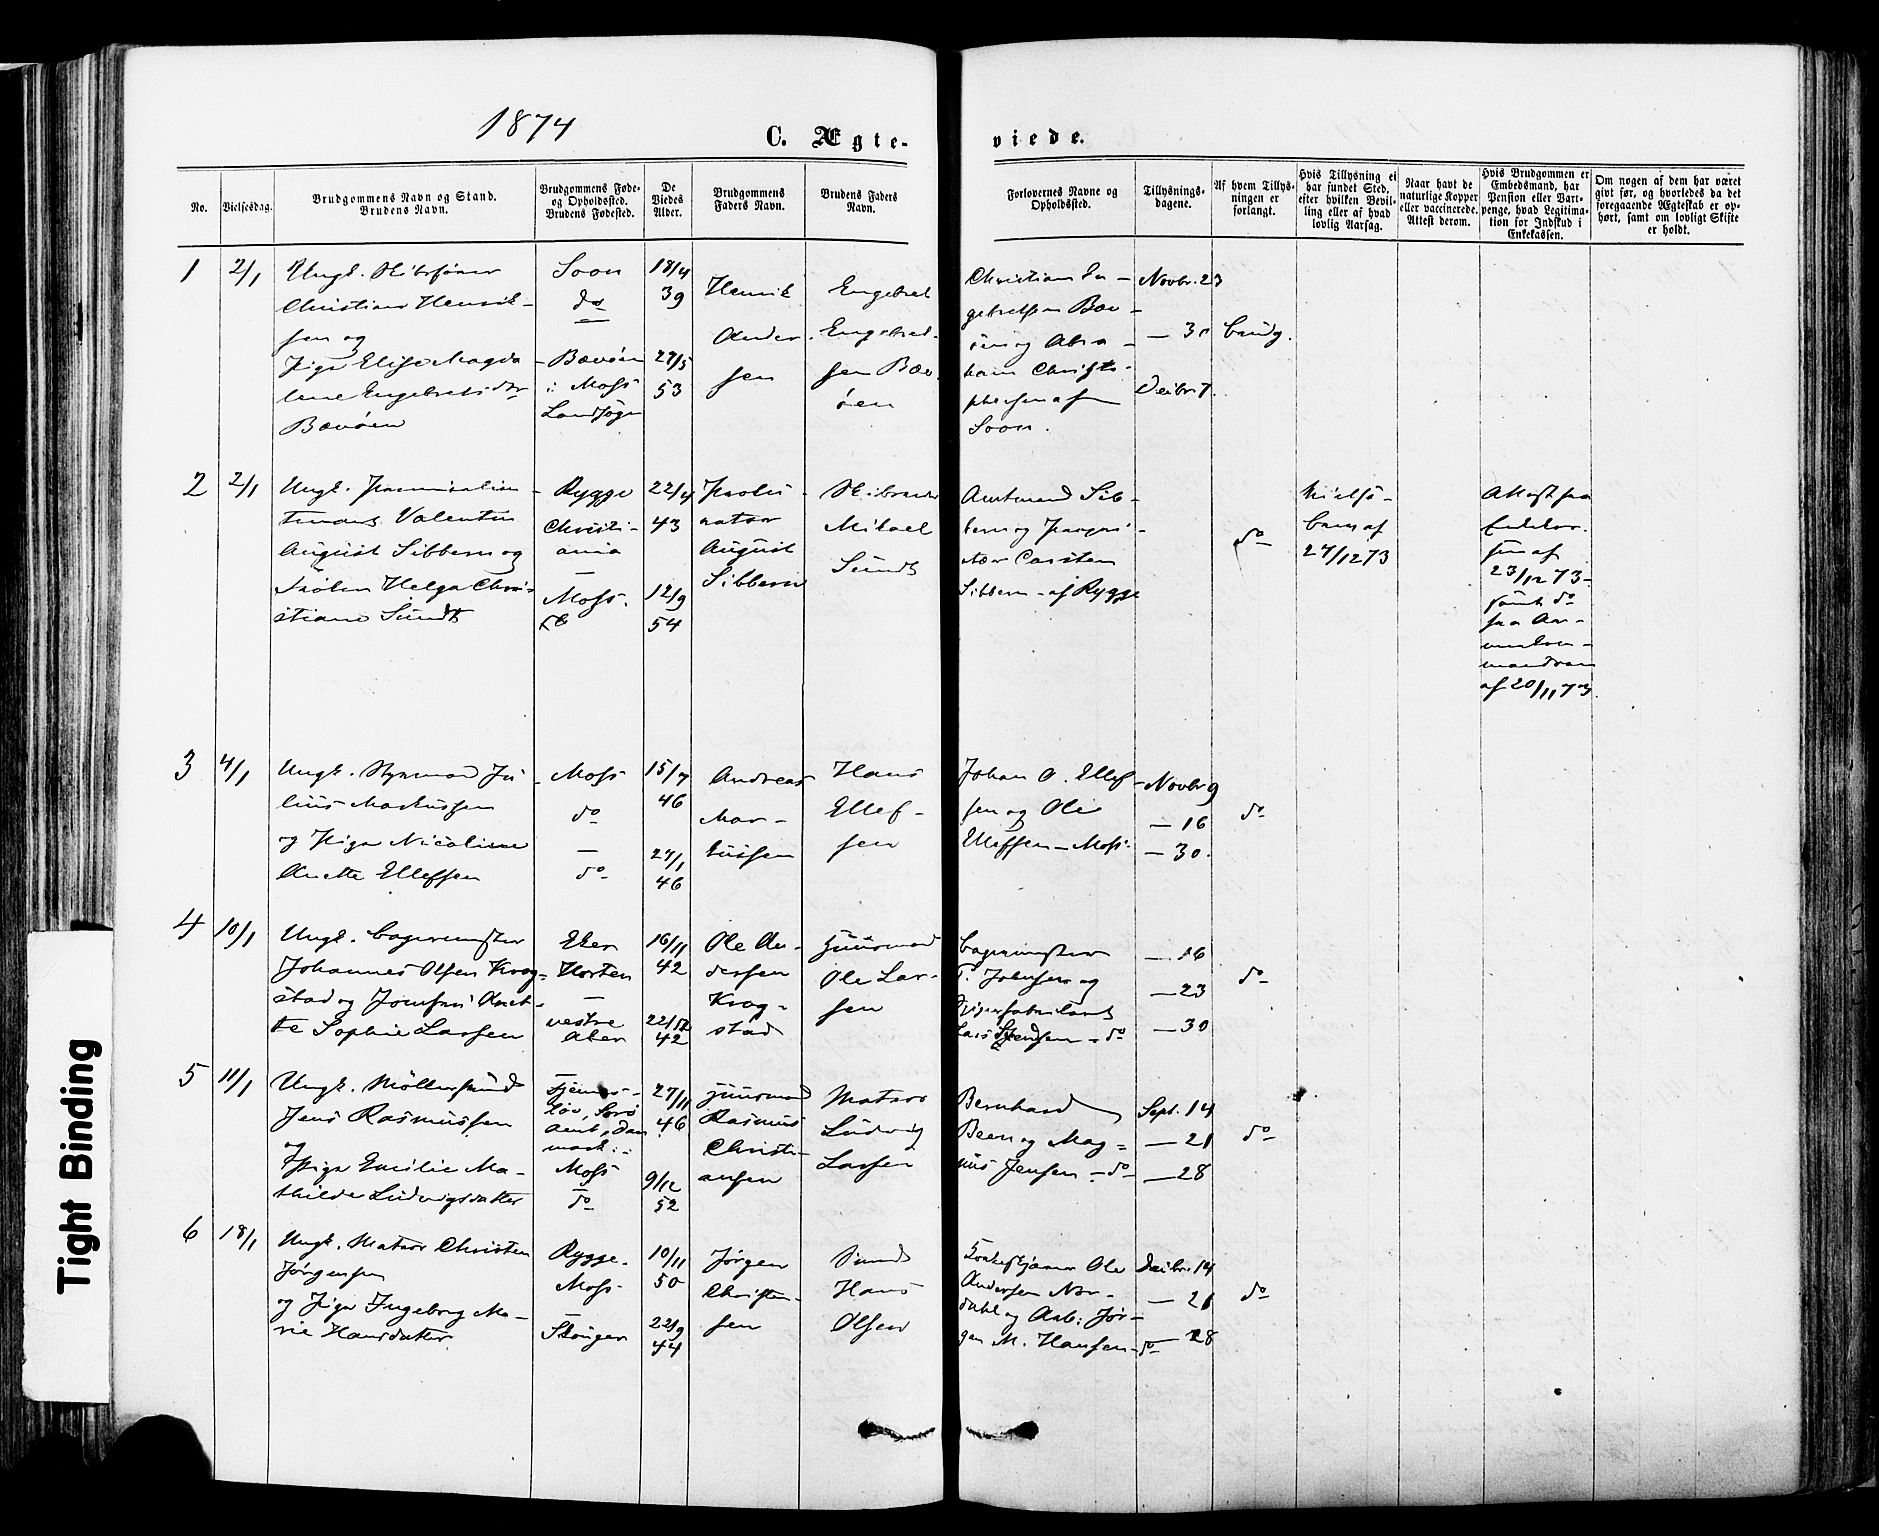 1874
C. Ægte-
viede.
No.
Vielsesdag.
Brudgommens Navn og Stand.
Brudens Navn.
Brudgommens Føde-
og Opholdssted.
Brudens Fødested.
De
Viedes
Alder.
Brudgommens
Faders Navn.
Brudens Faders
Navn.
Forlovernes Navne og
Opholdssted.
Tillysnings-
dagene.
Af hvem Tillys-
ningen er
forlangt.
Hvis Tillysning ei
har fundet Sted,
efter hvilken Bevil-
ling eller af hvad
lovlig Aarsag.
Naar havt de
naturlige Kopper
eller vaccinerede.
Attest derom.
Hvis Brudgommen er
Embedsmand, har
Pension eller Vart-
penge, hvad Legitima-
tion for Indskud i
Enkekassen.
Om nogen af dem har været
givt før, og hvorledes da det
foregaaende Ægteskab er op-
hørt, samt om lovligt Skifte
er holdt.
1
2/1
Ungk. Skibsfører
Christian Henrik-
sen og
Pige Elise Magda-
lene Engebretsdtr
Bævøen
Soon
do
Bævøen
i Moss
Landsogn
18/4
39
27/5
53
Henrik
Ander-
sen
Engebret
Engebret-
sen Bæv-
øen
Christian En-
gebretsen Bæv-
øen og Abra-
ham Christo-
phersen af
Soon.
Novbr. 23
— 30
Decbr. 7.
brudg.
2
2/1
Ungk. Premierlieu-
tenant Valentin
August Sibbern og
Frøken Helga Chri-
stiane Sundt
Rygge
Christi-
ania
—
Moss.
22/4
43
12/9
54
August
Sibbern
Mikael
Sundt
Amtmand Sib-
bern og
Carsten
Sibbern - af Rygge
do
brev af
27/12 73
Attest fra
Enkekas-
sen af
23/12 73 -
samt do
fra Ar-
meekom-
mandoen
af 20/11 73.
3
4/1
Ungk. Styrmand Ju-
lius Markussen
og Pige Nicoline
Anette Ellefsen
Moss
do
—
do
15/7
46
27/1
46
Andreas
Mar-
kussen
Hans
Ellef-
sen
Johan O. Ellef-
sen og Ole
Ellefsen - Moss.
Novbr 9
— 16
— 30.
do
4
10/1
Ungk. Bagermester
Johannes Olsen Krog-
stad og Jomfru Anet-
te Sophie Larsen
Eker
Horten
—
vestre
Aker
16/11
42
22/12
42
Ole An-
dersen
Krog-
stad
Huusmand
Ole Lar-
sen
Bagermester
T. Johnsen og
Lars Svendsen - do
— 16
— 23
— 30
do
5
11/1
Ungk. Møllersvend
Jens Rasmussen
og
Pige Emilie Ma-
thilde Ludvigsdatter
Fjennes-
løv, Sorø
Amt, Dan-
mark.
Moss
do
27/11
46
9/12
52
Huusmand
Rasmus
Christi-
ansen
Matros
Ludvig
Larsen
Bernhard
Been og Mag-
nus Jensen - do
Sept. 14
— 21
— 28
do
6
18/1
Ungk. Matros Christen
Jørgensen
og Pige Ingeborg Ma-
rie Hansdatter
Rygge.
Moss
Stange
10/11
50
22/9
44
Jørgen
Christen-
sen
Smed
Hans
Olsen
Ole
Andersen Nor-
dahl og Arb: Jør-
gen M. Hansen - do
Decbr. 14
— 21
— 28
do
Tight Binding